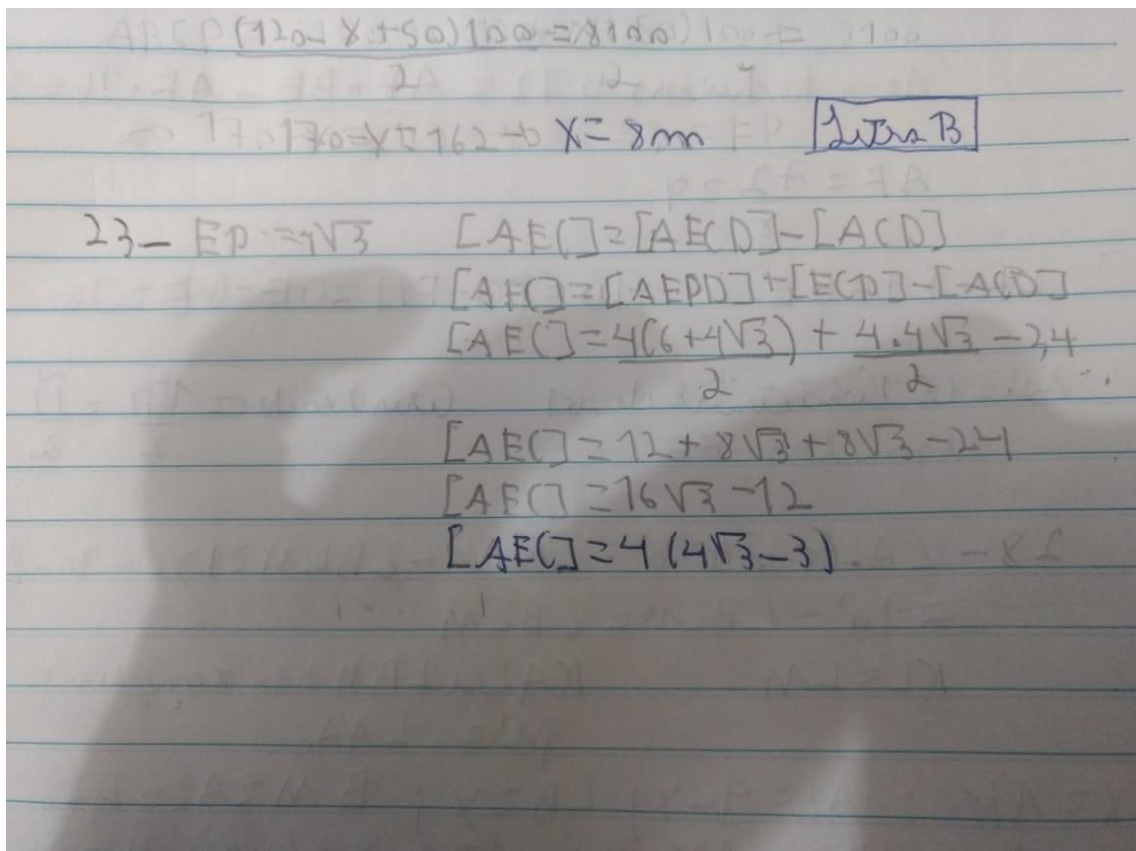 (120-x+50)100 = 8100
2
170-x=162→ x = 8m Letra B
23- EP = 4√3 [AEC]=[AECD]-[ACD]
[AEC]=[AEPD]+[ECP]-[ACD]
[AEC]=4(6+4√3)/2 + 4.4√3/2 -24
[AEC]=12+8√3+8√3-24
[AEC]=16√3-12
[AEC]=4(4√3-3)